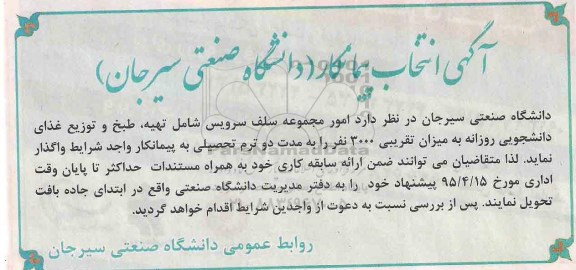 آگهی انتخاب پیمانکار (دانشگاه صنعتی سیرجان)
دانشگاه صنعتی سیرجان در نظر دارد امور مجموعه سلف سرویس شامل تهیه، طبخ و توزیع غذای
دانشجویی روزانه به میزان تقریبی ۳۰۰۰ نفر را به مدت دو ترم تحصیلی به پیمانکار واجد شرایط واگذار
نماید. لذا متقاضیان می توانند ضمن ارائه سابقه کاری خود به همراه مستندات حداکثر تا پایان وقت
اداری مورخ ۹۵/۴/۱۵ پیشنهاد خود را به دفتر مدیریت دانشگاه صنعتی واقع در ابتدای جاده بافت
تحویل نمایند. پس از بررسی نسبت به دعوت از واجدین شرایط اقدام خواهد گردید.
روابط عمومی دانشگاه صنعتی سیرجان